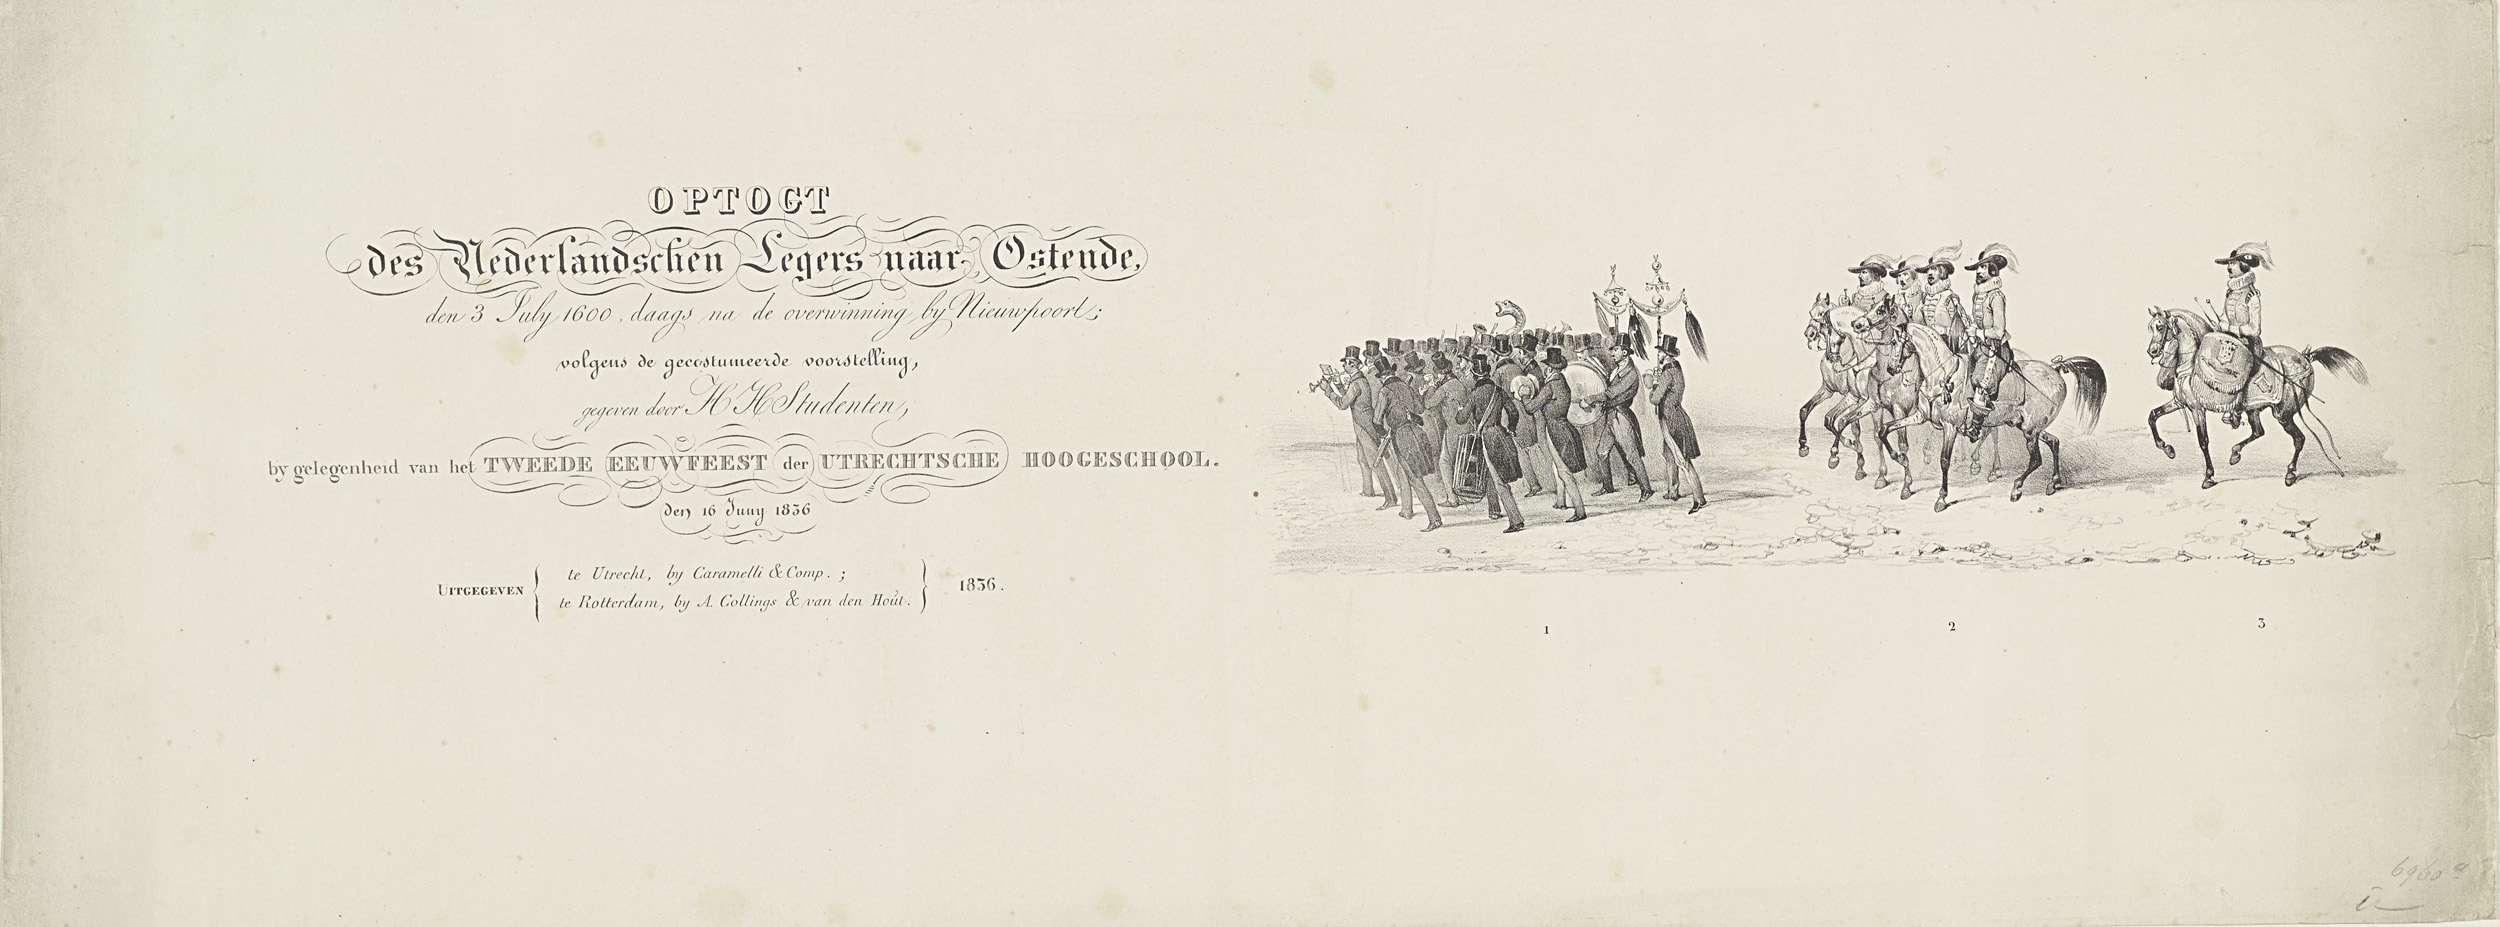 OPTOGT
des Nederlandschen Legers naar Ostende,
den 3 July 1600, daags na de overwinning by Nieuwpoort;
volgens de gecostumeerde voorstelling,
gegeven door H H Studenten,
by gelegenheid van het TWEEDE EEUWFEEST der UTRECHTSCHE HOOGESCHOOL.
den 16 Juny 1836
UITGEGEVEN { te Utrecht, by Caramelli & Comp. ;
te Rotterdam, by A. Collings & van den Hout. } 1836.
1
2
3
6960 a